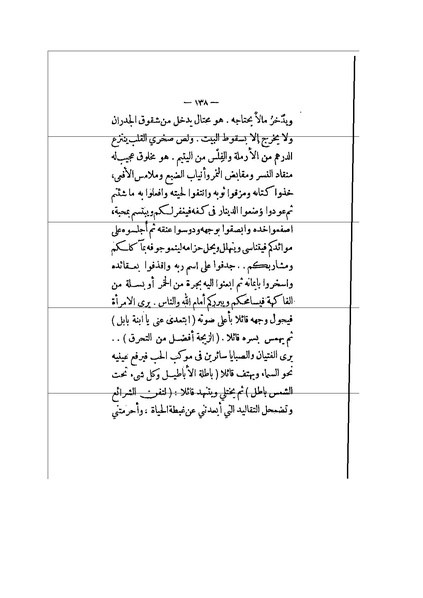 — ١٣٨ —
ويدّخر مالاً يحتاجه . هو محتال يدخل من شقوق الجدران
ولا يخرج إلا بسقوط البيت . ولص صخري القلب ينتزع
الدرهم من الأرملة والفلس من اليتيم . هو مخلوق عجيب له
منقاد النسر ومقابض النمر وأنياب الضبع وملامس الأفعى،
خذوا كتابه ومزقوا ثوبه وانتفوا لحيته وافعلوا به ما شئتم
ثم عودوا وضعوا الدينار في كفه فيغفر لكم ويبتسم بمحبة،
اصفعوا خده وابصقوا بوجهه ودوسوا عنقه ثم أجلسوه على
موائدكم فيتناسى ويتهلل ويحل حزامه ليتمو جوفه بمآكلكم
ومشاربكم .. جدفوا على اسم ربه واقذفوا بعقائده
واسخروا بإيمانه ثم ابعثوا اليه بجرة من الخمر أو بسلة من
الفاكهة فيسامحكم ويبرركم أمام الله والناس . يرى الامرأة
فيحول وجهه قائلا بأعلى صوته ( ابتعدي عني يا ابنة بابل )
ثم يهمس بسره قائلا . ( الزيجة أفضل من التحرق ) ..
يرى الفتيان والصبايا سائرين في موكب الحب فيرفع عينيه
نحو السماء ويهتف قائلا ( باطلة الأباطيل وكل شيء تحت
الشمس باطل ) ثم يختلي ويتنهد قائلا : ( لتفن الشرائع
وتضمحل التقاليد التي أبعدتني عن غبطة الحياة ، وأحرمتني